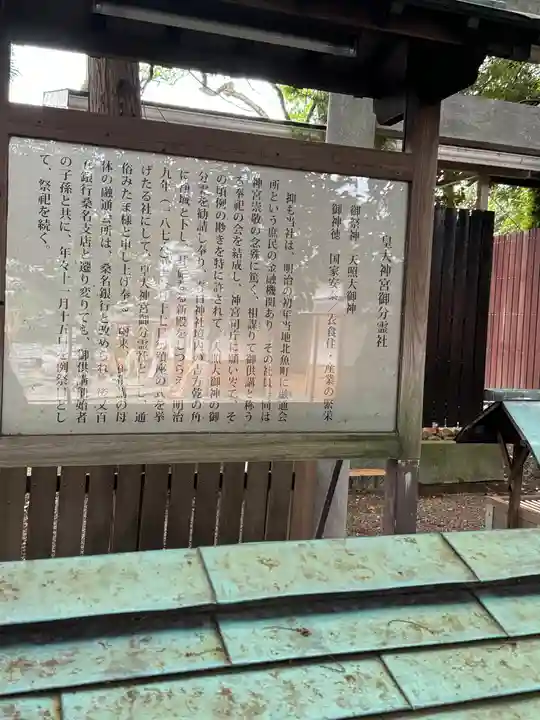 皇大神宮御分霊社
御祭神 天照大御神
御神徳 国家安泰 衣食住・産業の繁栄
抑も当社は、明治の初年当地北魚町に融通会
所という庶民の金融機関あり、その社員の間は
神宮崇敬の念殊に篤く、相謀りて御供講と称う
奉祀の会を結成し、神宮司庁に願い出て、そ
の頃例の尠きを特に許されて、天照大御神の御
分霊を勧請し奉り、春日神社境内の吉方乾の角
に
と下し、
る新殿をしつらえ、明治
九年(一八七
座の式を挙
げたる社にして、皇大神宮御分霊社と
、通
俗みたま様と申し上げ奉る。爾来、御供講の母
体の融通会所は、桑名銀行と改められ、
又百
五銀行桑名支店と遷り変りても、御供講開始者
の子孫と共に、年々十一月十五日を例祭日とし
て、祭祀を続く。